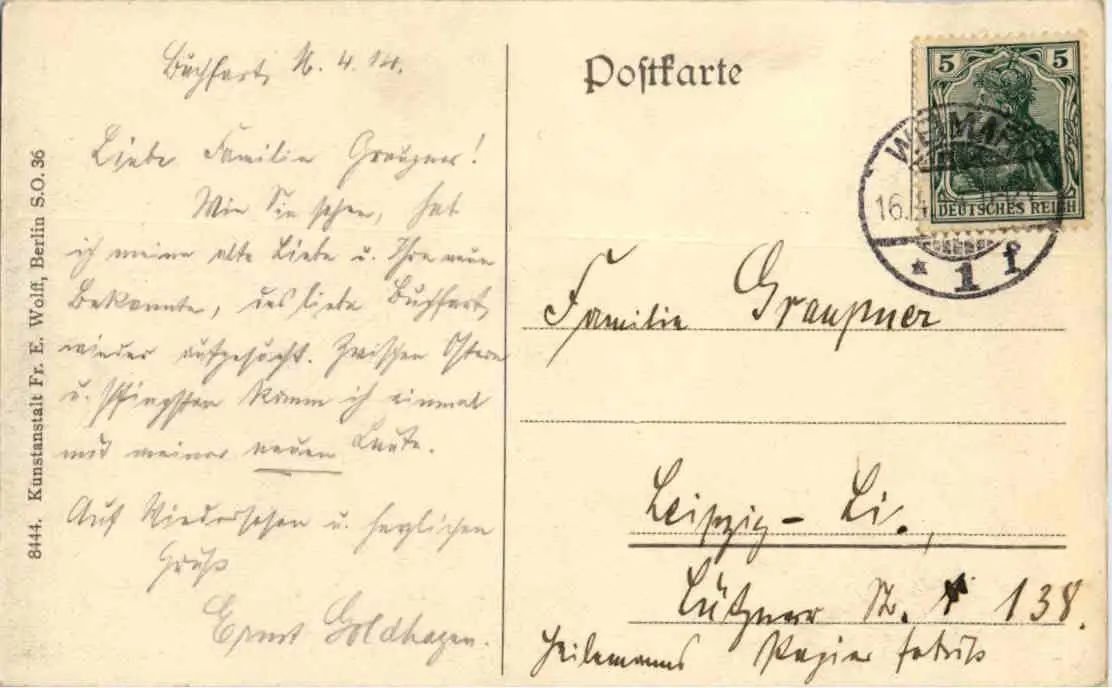 8444. Kunstanstalt Fr. E. Wolff, Berlin S.O. 36
Buchfart, 4. 14.
Liebe Familie Graupner!
Wie Sie sehen, hat
ich meine alte Liebe u. Ihre neue
Bekannte, das liebe Buchfart,
wieder aufgesucht. Zwischen Ostern
u. Pfingsten komm ich einmal
mit meiner neuen Laute.
Auf Wiedersehen u. herzlichen
Gruß
Ernst Goldhagen.
Postkarte
5 5
DEUTSCHES REICH
WEIMAR
16.4.
* 1 f
Familie Graupner
Leipzig - Li.,
Lützner Str. 138.
Heilemanns Papier fabrik